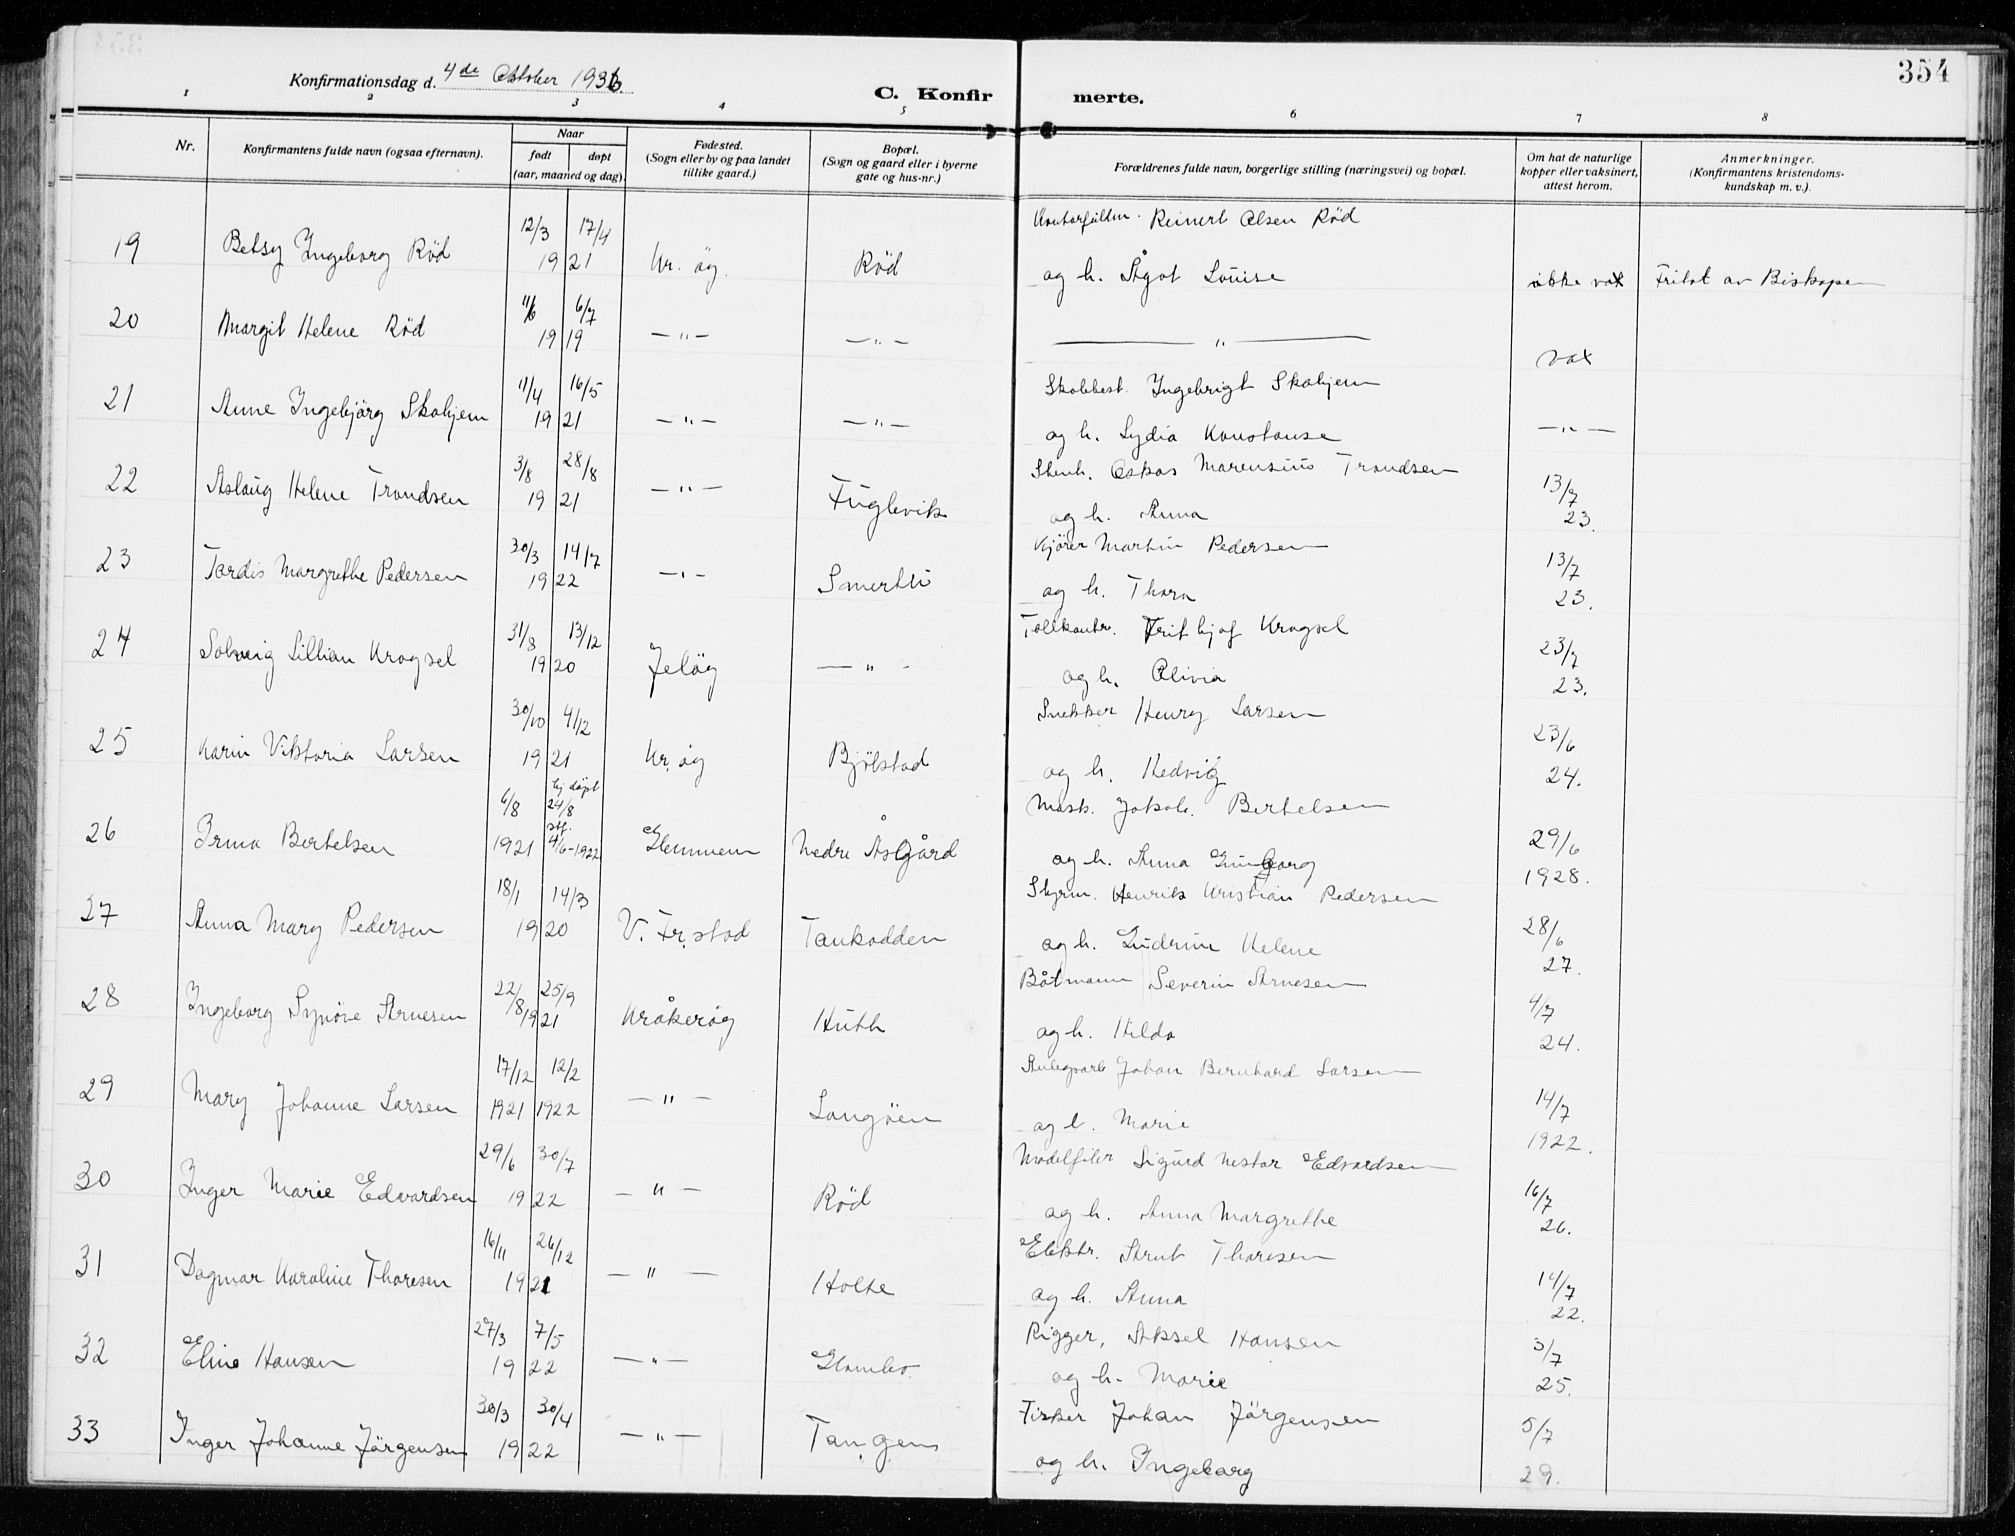 354
Konfirmationsdag d. 4de Oktober 1936.
C. Konfir merte.
1 2 3 4 5 6 7 8
Nr.
Konfirmantens fulde navn (ogsaa efternavn).
Naar
født døpt
(aar, maaned og dag).
Fødested.
(Sogn eller by og paa landet
tillike gaard.)
Bopæl.
(Sogn og gaard eller i byerne
gate og hus-nr.)
Forældrenes fulde navn, borgerlige stilling (næringsvei) og bopæl.
Om hat de naturlige
kopper eller vaksinert,
attest herom.
Anmerkninger.
(Konfirmantens kristendoms-
kundskap m. v.).
12/3 17/4 Reinert Olsen Rød
19 Betsy Ingeborg Rød 19 21 Kr. øy. Rød og h. Ågot Louise ikke vax Fritat av Biskopen
11/6 6/7
20 Margit Helene Rød 19 19 — " — — " — — " — vax
11/4 16/5 Ingebrigt Skohjem
21 Anne Ingebjörg Skohjem 19 21 — " — — " — og h. Lydia Konstanse — " —
3/8 28/8 Oskar Marensius Trondsen
22 Aslaug Helene Trondsen 19 21 — " — Fuglevik og h. Anna 13/7 23.
30/3 14/7 Kjörer Martin Pedersen
23 Tordis Margrethe Pedersen 19 22 — " — Smertu og h. Thora 13/7 23.
31/8 13/12 Tollkontr. Frithjof Krogsel
24 Solveig Lillian Krogsel 19 20 Jeløy — " — og h. Olivia 23/7 23.
30/10 4/12 Snekker Henry Larsen
25 Karin Viktoria Larsen 19 21 Kr. øy Bjölstad og h. Hedvig 23/6 24.
6/8 hj døpt 24/8 Mask. Jakob. Bertelsen
26 Irma Bertelsen 1921 stf. 4/6-1922 Glemmen Nedre Åsgård og h. Anna Gunborg 29/6 1928.
18/1 14/3 Styrm. Henrik Kristian Pedersen
27 Anna Mary Pedersen 19 20 V. Fr.stad Tankodden og h. Gudrun Helene 28/6 27.
22/8 25/9 Båtmann Severin Arnesen
28 Ingeborg Synöve Arnesen 19 21 Kråkerøy Huth og h. Hilda 4/7 24.
17/12 12/2 Johan Bernhard Larsen
29 Mary Johanne Larsen 1921 1922 — " — Langöen og h. Marie 14/7 1922.
29/6 30/7 Modelfiler Sigurd Nestor Edvardsen
30 Inger Marie Edvardsen 19 22 — " — Rød og h. Anna Margrethe 16/7 26.
16/11 26/12 Elektr. Arnt Thoresen
31 Dagmar Karoline Thoresen 19 21 — " — Holte og h. Anna 14/7 22.
27/3 7/5 Rigger, Aksel Hansen
32 Eline Hansen 19 22 — " — Glombo. og h. Marie 3/7 25.
30/3 30/4 Fisker Johan Jörgensen
33 Inger Johanne Jörgensen 19 22 — " — Tangen og h. Ingeborg 5/7 29.